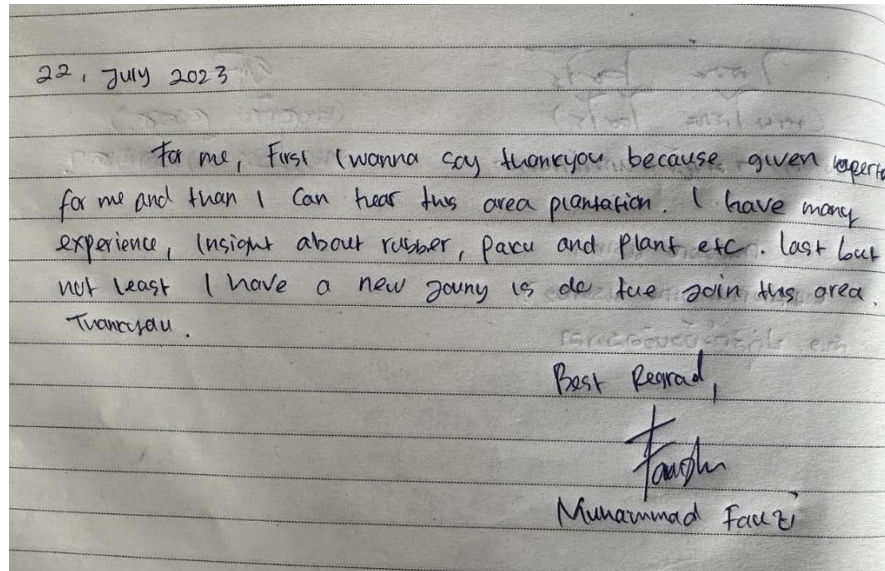 22, July 2023
For me, First I wanna say thankyou because given
for me and than I Can hear this area plantation. I have many
experience, Insight about rubber, paku and Plant etc. last but
not least I have a new jouny is do the join this area.
Thankyou.
Best Regrad,
Muhammad Fauzi